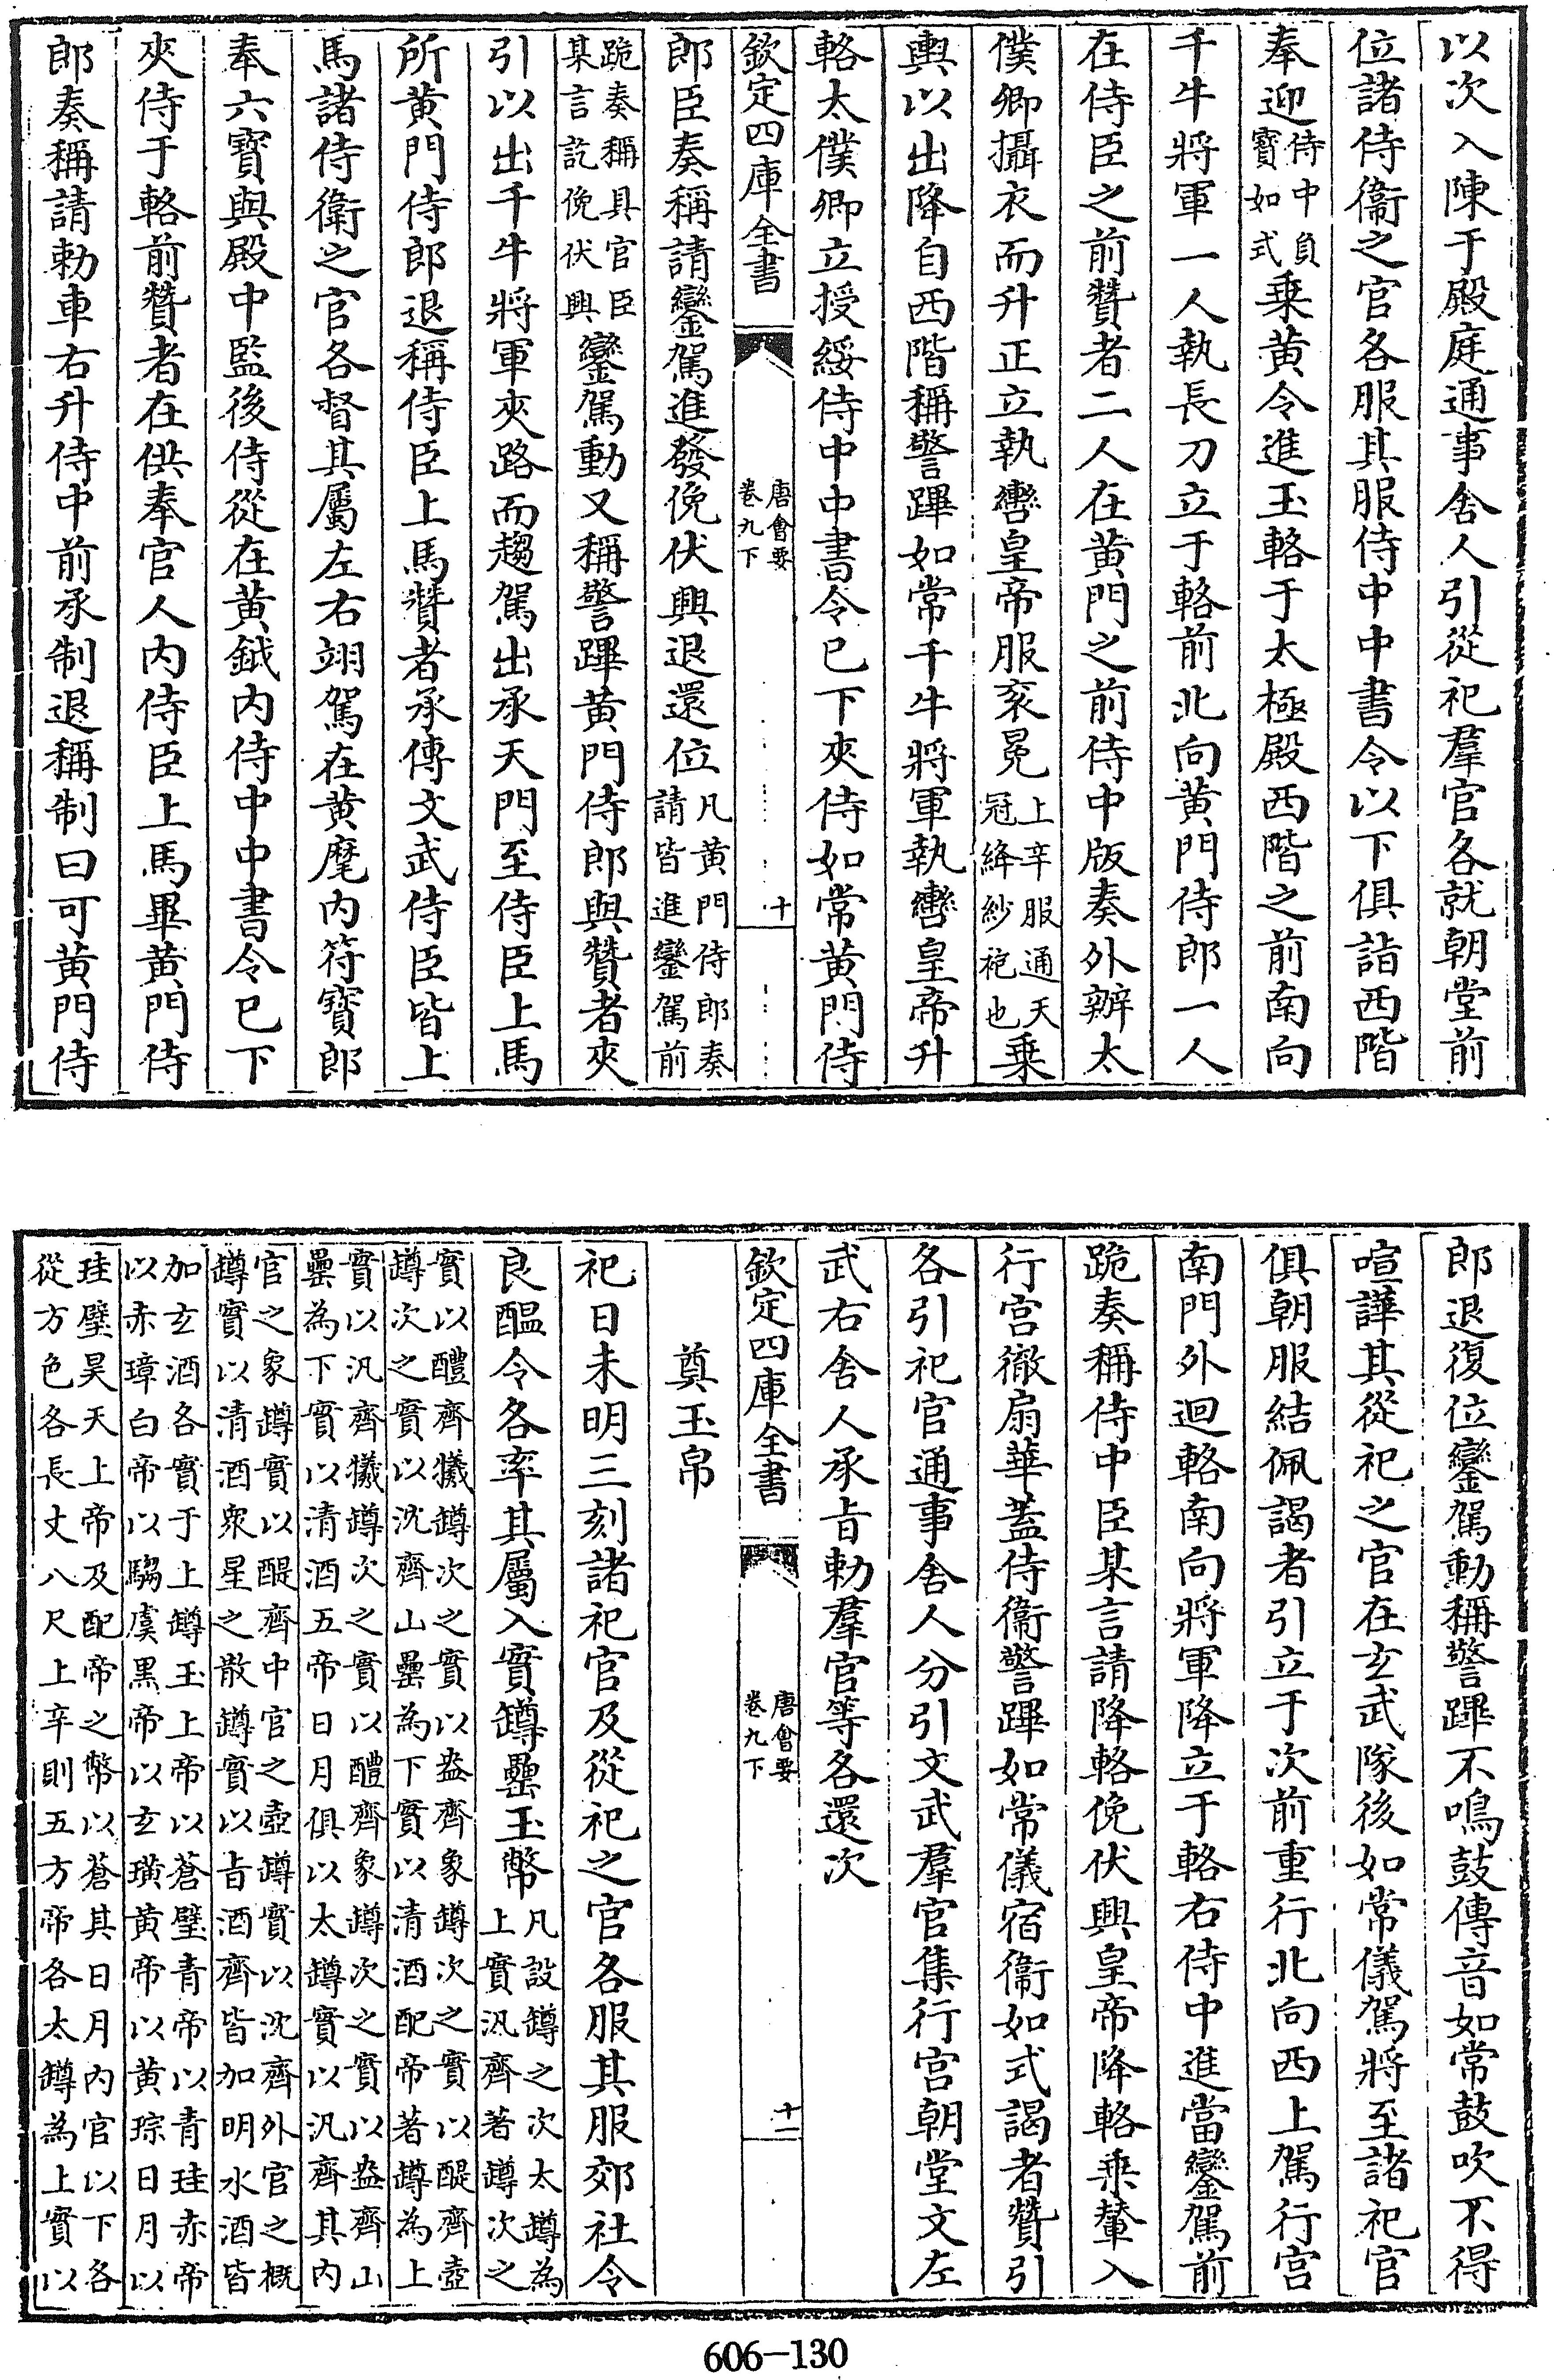 以次入陳于殿庭通事舍人引從祀羣官各就朝堂前
位諸侍衞之官各服其服侍中中書令以下俱詣西階
奉迎侍中負寳如式乗黄令進玉輅于太極殿西階之前南向
千牛將軍一人執長刀立于輅前北向黄門侍郎一人
在侍臣之前贊者二人在黄門之前侍中版奏外辦太
僕卿攝衣而升正立執轡皇帝服衮冕上辛服通天冠絳紗袍也乗
輿以出降自西階稱警蹕如常千牛將軍執轡皇帝升
輅太僕卿立授綏侍中中書令已下夾侍如常黄門侍
欽定四庫全書
唐會要卷九下
十
郎臣奏稱請鑾駕進發俛伏興退還位凡黄門侍郎奏請皆進鑾駕前
跪奏稱具官臣某言訖俛伏興鑾駕動又稱警蹕黄門侍郎與贊者夾
引以出千牛將軍夾路而趨駕出承天門至侍臣上馬
所黄門侍郎退稱侍臣上馬贊者承傳文武侍臣皆上
馬諸侍衛之官各督其屬左右翊駕在黄麾内符寳郎
奉六寳與殿中監後侍從在黄鉞内侍中中書令已下
夾侍于輅前贊者在供奉官人内侍臣上馬畢黄門侍
郎奏稱請勅車右升侍中前承制退稱制曰可黄門侍
郎退復位鑾駕動稱警蹕不鳴鼓傳音如常鼓吹不得
喧譁其從祀之官在玄武隊後如常儀駕將至諸祀官
俱朝服結佩謁者引立于次前重行北向西上駕行宫
南門外迴輅南向將軍降立于輅右侍中進當鑾駕前
跪奏稱侍中臣某言請降輅俛伏興皇帝降輅乗輦入
行宫徹扇華蓋侍衞警蹕如常儀宿衞如式謁者贊引
各引祀官通事舍人分引文武羣官集行宫朝堂文左
武右舍人承旨勅羣官等各還次
欽定四庫全書
唐會要卷九下
十一
奠玉帛
祀日未明三刻諸祀官及從祀之官各服其服郊社令
良醖令各率其屬入實罇罍玉幣凡設罇之次太罇為上實汎齊著罇次之
實以醴齊犧罇次之實以盎齊象罇次之實以醍齊壺罇次之實以沈齊山罍為下實以清酒配帝著罇為上
實以汎齊犧罇次之實以醴齊象罇次之實以盎齊山罍為下實以清酒五帝日月俱以太罇實以汎齊其内
官之象罇實以醍齊中官之壺罇實以沈齊外官之概罇實以清酒衆星之散罇實以旨酒齊皆加明水酒皆
加玄酒各實于上罇玉上帝以蒼璧青帝以青珪赤帝以赤璋白帝以騶虞黒帝以玄璜黄帝以黄琮日月以
珪璧昊天上帝及配帝之幣以蒼其日月内官以下各從方色各長丈八尺上辛則五方帝各太罇為上實以
606—130